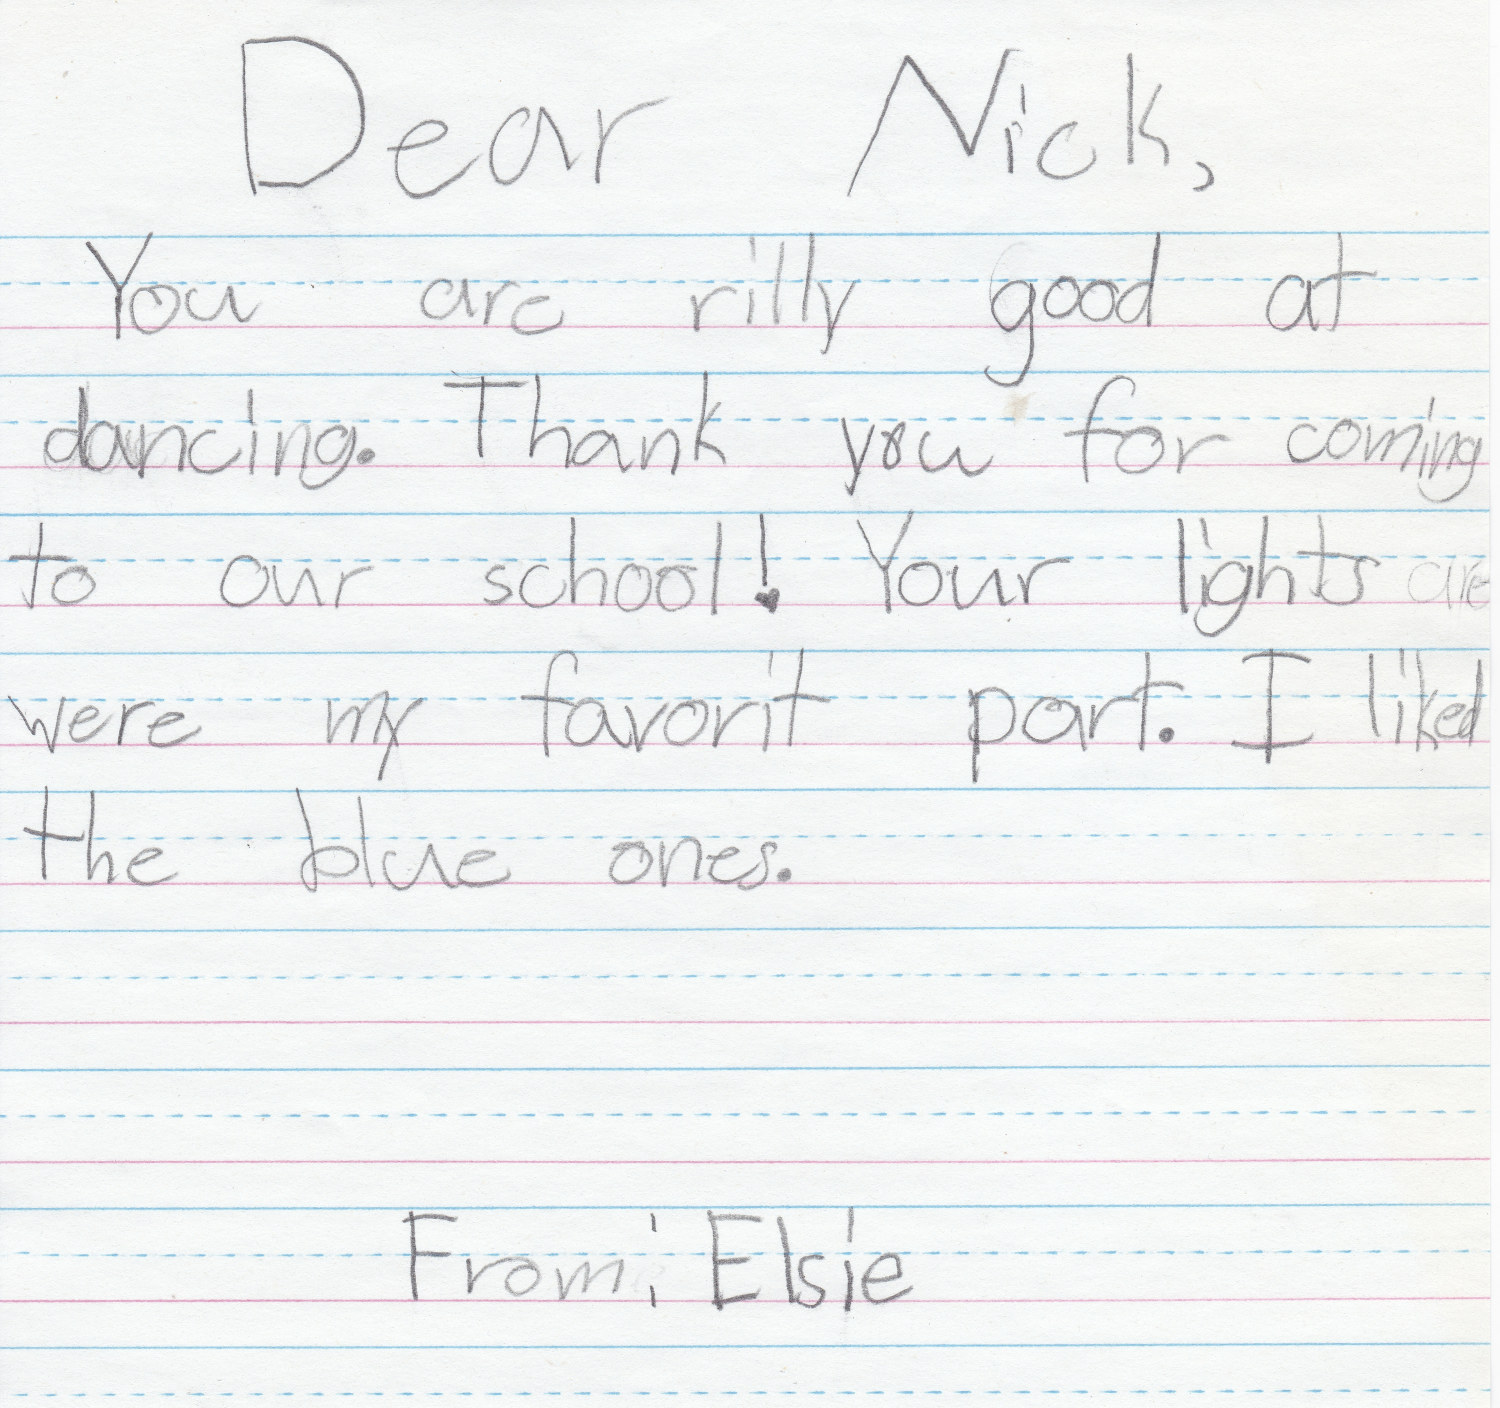 Dear Nick,
You are rilly good at
dancing. Thank you for coming
to our school! Your lights are
were my favorit part. I liked
the blue ones.
From: Elsie